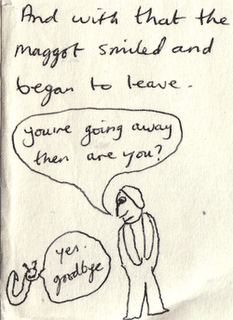 And with that the
maggot smiled and
began to leave.
you're going away
then are you?
yes.
goodbye